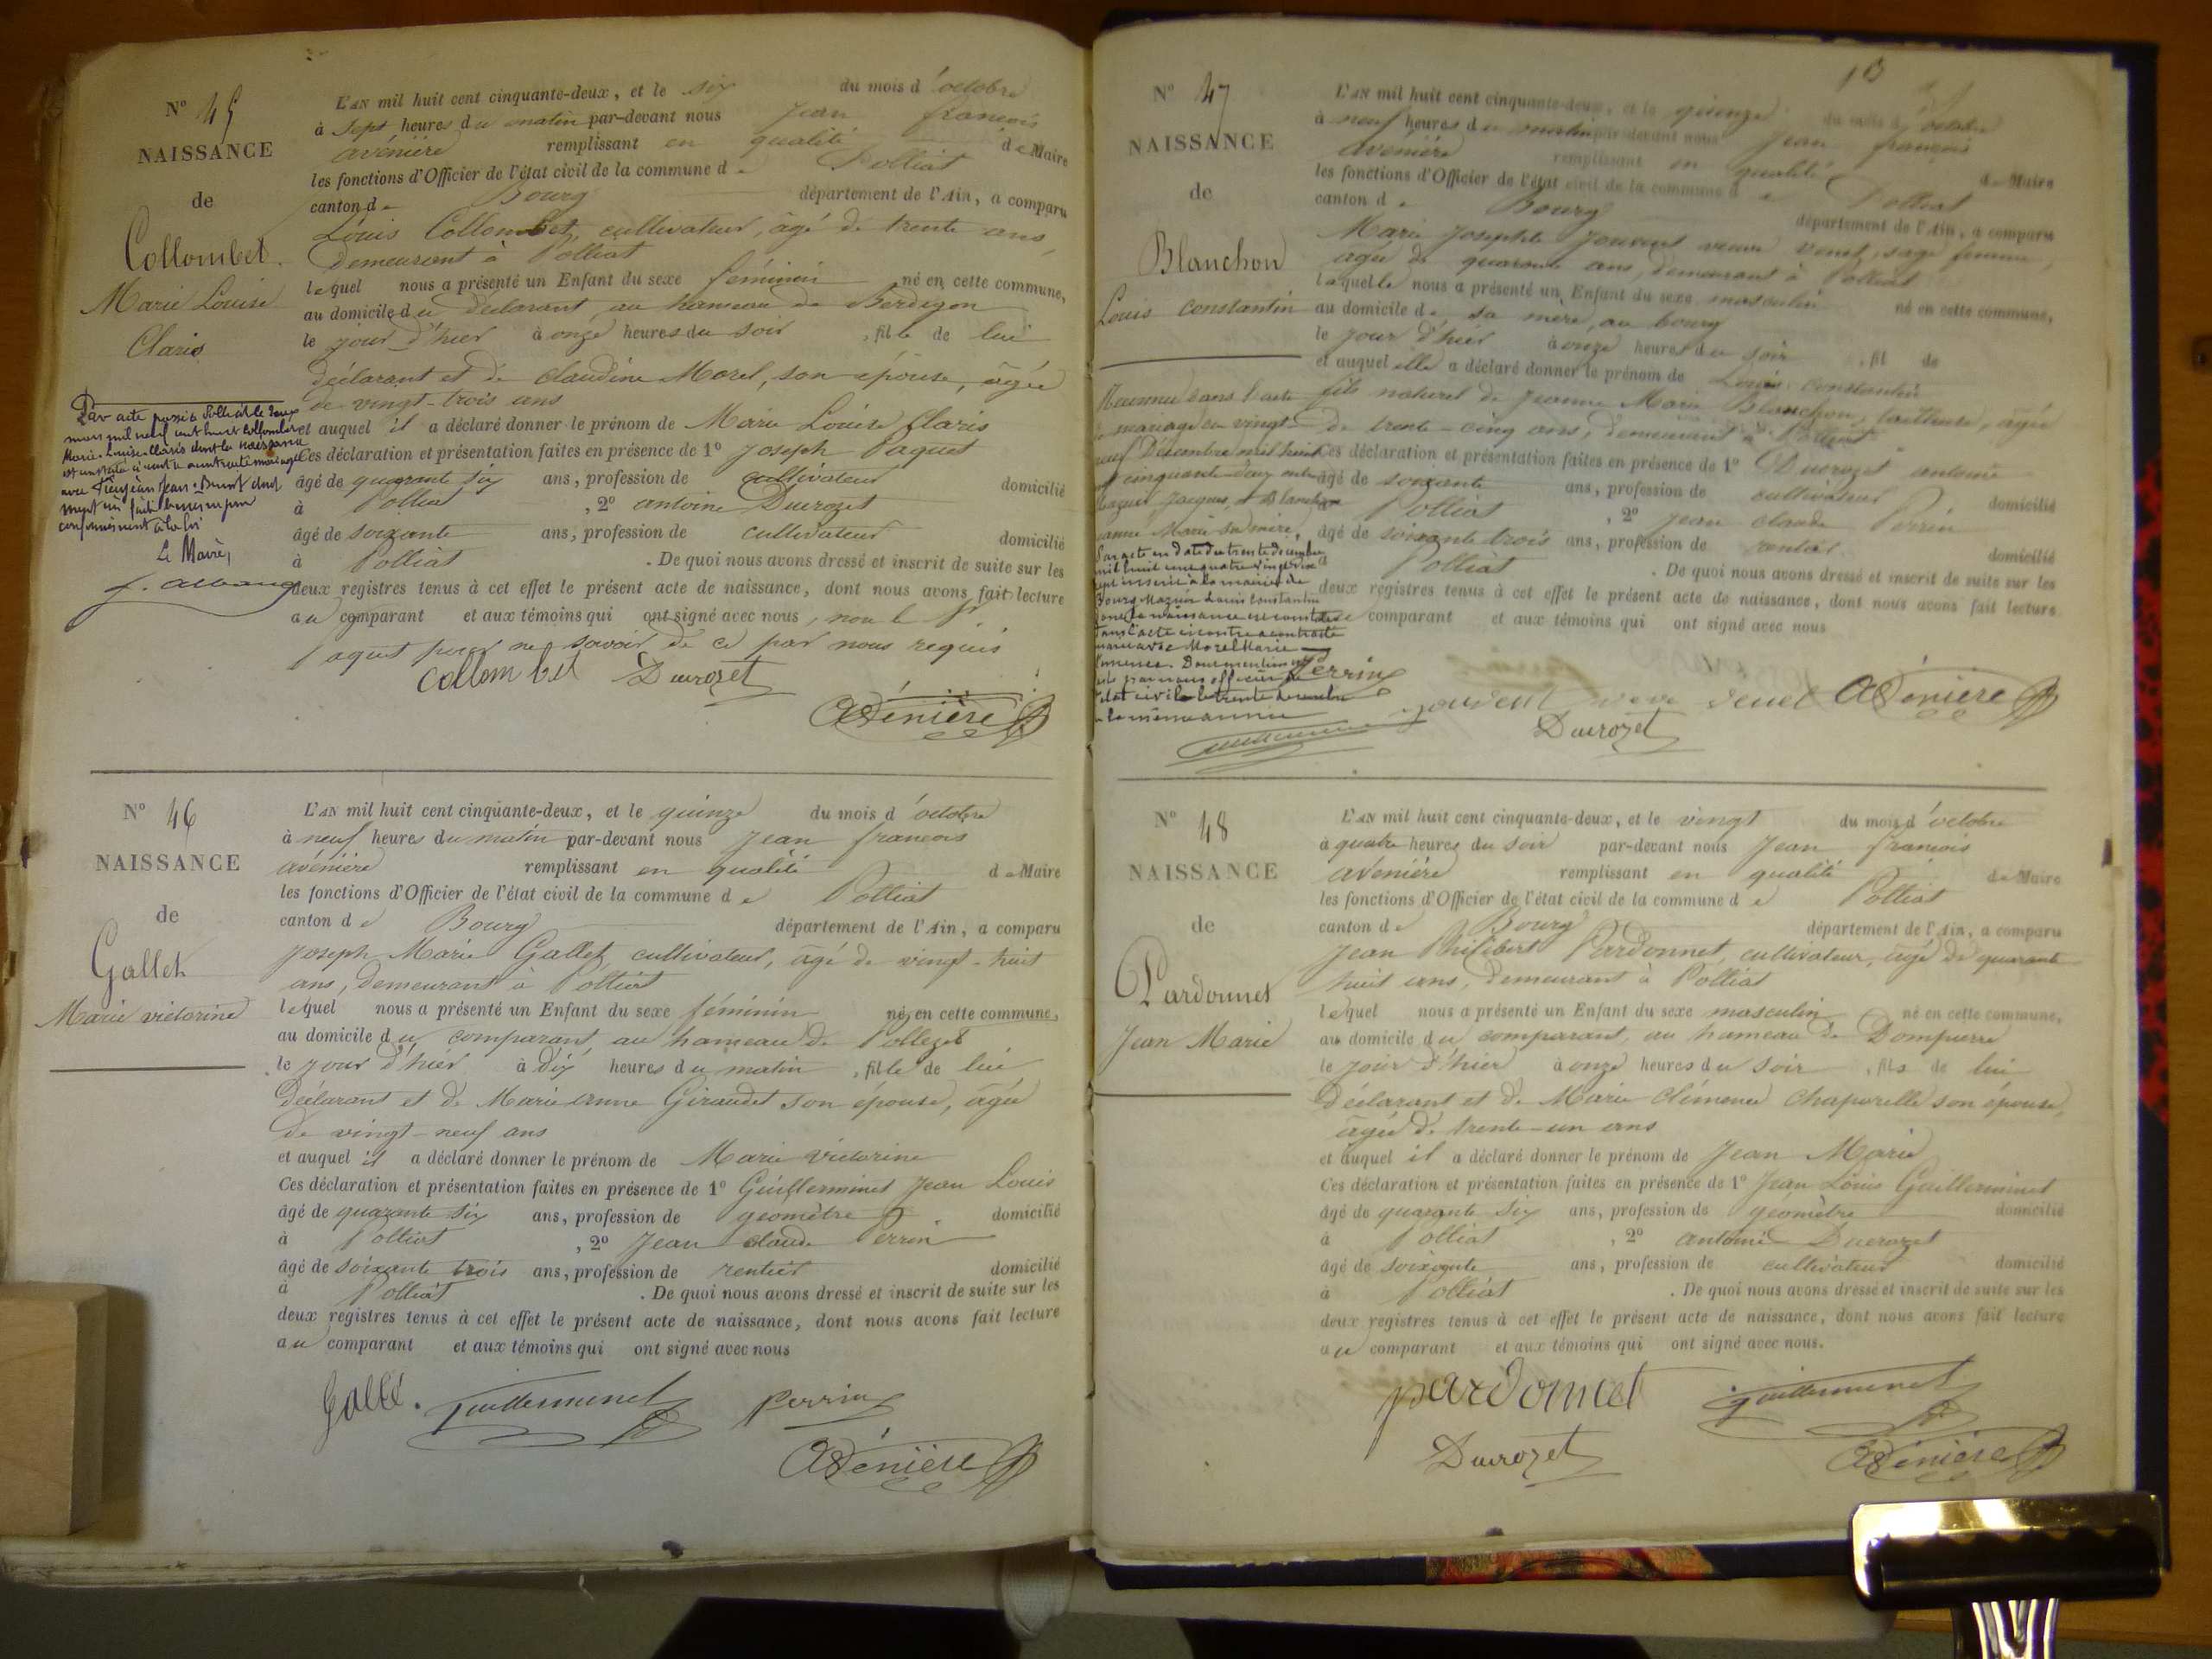 N° 45
NAISSANCE
de
Collombet
Marie Louise
Claris
L'AN mil huit cent cinquante-deux, et le six du mois d'octobre
à sept heures du matin par-devant nous Jean françois
avénière remplissant en qualité de Maire
les fonctions d'Officier de l'état civil de la commune de Polliat
canton de Bourg département de l'Ain, a comparu
Louis Collombet, cultivateur, âgé de trente ans,
demeurant à Polliat
lequel nous a présenté un Enfant du sexe féminin né en cette commune,
au domicile du déclarant, au hameau de Berdigon
le jour d'hier à onze heures du soir, fille de lui
déclarant et de claudine Morel, son épouse, âgée
de vingt-trois ans
et auquel il a déclaré donner le prénom de Marie Louise Claris
Ces déclaration et présentation faites en présence de 1° Joseph Paquet
âgé de quarante six ans, profession de cultivateur domicilié
à Polliat, 2° antoine Ducrozet
âgé de soixante ans, profession de cultivateur domicilié
à Polliat. De quoi nous avons dressé et inscrit de suite sur les
deux registres tenus à cet effet le présent acte de naissance, dont nous avons fait lecture
au comparant et aux témoins qui ont signé avec nous, non le
Paquet pour ne savoir de ce par nous requis
Par acte passé à Polliat le deux
mars mil neuf cent huit Collombet
Marie-Louise-Claris dont la naissance
est constatée ci-contre a contracté mariage
avec Jean Benoit dont
mention faite
conformément à la loi
Le Maire,
Collombet Ducrozet
Avénière
N° 46
NAISSANCE
de
Gallet
Marie victorine
L'AN mil huit cent cinquante-deux, et le quinze du mois d'octobre
à neuf heures du matin par-devant nous Jean françois
avénière remplissant en qualité de Maire
les fonctions d'Officier de l'état civil de la commune de Polliat
canton de Bourg département de l'Ain, a comparu
Joseph Marie Gallet, cultivateur, âgé de vingt-huit
ans, demeurant à Polliat
lequel nous a présenté un Enfant du sexe féminin né en cette commune,
au domicile du comparant, au hameau de Pollezet
le jour d'hier à dix heures du matin, fille de lui
déclarant et de Marie anne Giraudet son épouse, âgée
de vingt-neuf ans
et auquel il a déclaré donner le prénom de Marie victorine
Ces déclaration et présentation faites en présence de 1° Guillerminet Jean Louis
âgé de quarante six ans, profession de géomètre domicilié
à Polliat, 2° Jean claude Perrin
âgé de soixante trois ans, profession de rentier domicilié
à Polliat. De quoi nous avons dressé et inscrit de suite sur les
deux registres tenus à cet effet le présent acte de naissance, dont nous avons fait lecture
au comparant et aux témoins qui ont signé avec nous
Gallé. Guillerminet Perrin
Avénière
N° 47
NAISSANCE
de
Blanchon
Louis constantin
L'AN mil huit cent cinquante-deux, et le quinze du mois d'octobre
à neuf heures du matin par-devant nous Jean françois
avénière remplissant en qualité de Maire
les fonctions d'Officier de l'état civil de la commune de Polliat
canton de Bourg département de l'Ain, a comparu
Marie Josephte Jouvent veuve Venet, sage femme,
âgée de quarante ans, demeurant à Polliat
laquelle nous a présenté un Enfant du sexe masculin né en cette commune,
au domicile de sa mère, au bourg
le jour d'hier à onze heures du soir, fil de
et auquel elle a déclaré donner le prénom de Louis constantin
fils naturel de Jeanne Marie Blanchon, tailleuse, âgée
de trente-cinq ans, demeurant à Polliat
Ces déclaration et présentation faites en présence de 1° Ducrozet antoine
âgé de soixante ans, profession de cultivateur domicilié
à Polliat, 2° Jean claude Perrin
âgé de soixante trois ans, profession de rentier domicilié
à Polliat. De quoi nous avons dressé et inscrit de suite sur les
deux registres tenus à cet effet le présent acte de naissance, dont nous avons fait lecture
comparant et aux témoins qui ont signé avec nous
Reconnu dans l'acte
de mariage du vingt-
neuf Décembre mil huit cent
cinquante-deux entre
Jacques, et Blanchon
Jeanne Marie sa mère,
Par acte en date du trente décembre
mil huit cent quatre vingt
inscrit à la mairie de
Bourg Mazuir Louis Constantin
dont la naissance est constatée
dans l'acte ci-contre a contracté
mariage avec Morel Marie
Dont mention
par nous officier de
l'état civil le trente décembre
de la même année
Perrin
jouvent veuve venet Avénière
Ducrozet
N° 48
NAISSANCE
de
Pardonnet
Jean Marie
L'AN mil huit cent cinquante-deux, et le vingt du mois d'octobre
à quatre heures du soir par-devant nous Jean françois
avénière remplissant en qualité de Maire
les fonctions d'Officier de l'état civil de la commune de Polliat
canton de Bourg département de l'Ain, a comparu
Jean Philibert Pardonnet, cultivateur, âgé de quarante
huit ans, demeurant à Polliat
lequel nous a présenté un Enfant du sexe masculin né en cette commune,
au domicile du comparant, au hameau de Dompierre
le jour d'hier à onze heures du soir, fils de lui
déclarant et de Marie clémence Chapurelle son épouse,
âgée de trente-un ans
et auquel il a déclaré donner le prénom de Jean Marie
Ces déclaration et présentation faites en présence de 1° Jean Louis Guillerminet
âgé de quarante six ans, profession de géomètre domicilié
à Polliat, 2° antoine Ducrozet
âgé de soixante ans, profession de cultivateur domicilié
à Polliat. De quoi nous avons dressé et inscrit de suite sur les
deux registres tenus à cet effet le présent acte de naissance, dont nous avons fait lecture
au comparant et aux témoins qui ont signé avec nous.
pardonnet Guillerminet
Ducrozet Avénière